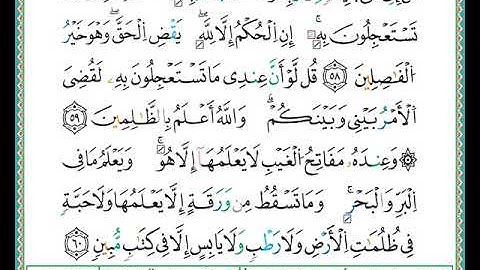 تَسْتَعْجِلُونَ بِهِۦٓ إِنِ اِ۬لْحُكْمُ إِلَّا لِلَّهِۖ يَقْضِ اِ۬لْحَقَّۖ وَهْوَ خَيْرُ
اُ۬لْفَٰصِلِينَ ٥٨ قُل لَّوْ أَنَّ عِندِى مَا تَسْتَعْجِلُونَ بِهِۦ لَقُضِىَ
اَ۬لْأَمْرُ بَيْنِى وَبَيْنَكُمْۗ وَاللَّهُ أَعْلَمُ بِالظَّٰلِمِينَ ٥٩
۞ وَعِندَهُۥ مَفَاتِحُ اُ۬لْغَيْبِ لَا يَعْلَمُهَآ إِلَّا هُوَ وَيَعْلَمُ مَا فِى
اِ۬لْبَرِّ وَالْبَحْرِ وَمَا تَسْقُطُ مِن وَرَقَةٍ إِلَّا يَعْلَمُهَا وَلَا حَبَّةٍ
فِى ظُلُمَٰتِ اِ۬لْأَرْضِ وَلَا رَطْبٍ وَلَا يَابِسٍ إِلَّا فِى كِتَٰبٍ مُّبِينٍ ٦٠